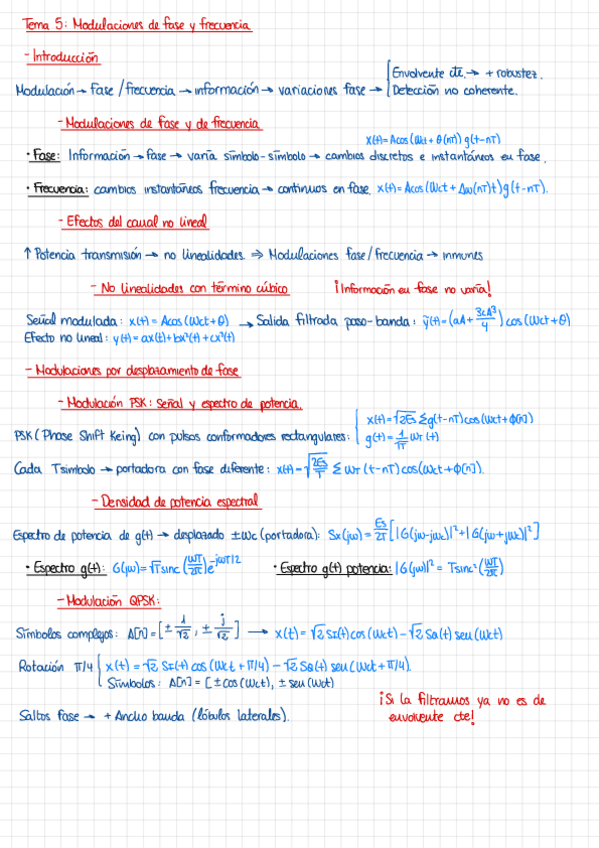 Tema 5: Modulaciones de fase y frecuencia
- Introducción
Modulación → Fase / frecuencia → información → variaciones fase → { Envolvente cte. → + robustez.
Detección no coherente.
- Modulaciones de fase y de frecuencia
x(t) = Acos(Wct + θ(nT)) g(t-nT)
• Fase: Información → fase → varía símbolo-símbolo → cambios discretos e instantáneos en fase.
• Frecuencia: cambios instantáneos frecuencia → continuos en fase. x(t) = Acos(Wct + Δω(nT)t) g(t-nT).
- Efectos del canal no lineal
↑ Potencia transmisión → no linealidades. ⇒ Modulaciones fase/frecuencia → inmunes
- No linealidades con término cúbico ¡Información en fase no varía!
Señal modulada: x(t) = Acos(Wct+θ) → Salida filtrada paso-banda: ỹ(t) = (aA + 3cA³/4) cos(Wct+θ)
Efecto no lineal: y(t) = ax(t) + bx²(t) + cx³(t)
- Modulaciones por desplazamiento de fase
- Modulación PSK: Señal y espectro de potencia.
PSK (Phase Shift Keing) con pulsos conformadores rectangulares: { x(t) = √2Es Σg(t-nT)cos(Wct+ϕ[n])
g(t) = 1/√T WT(t)
Cada Tsímbolo → portadora con fase diferente: x(t) = √(2Es/T) Σ WT(t-nT)cos(Wct+ϕ[n]).
- Densidad de potencia espectral
Espectro de potencia de g(t) → desplazado ±Wc (portadora): Sx(jω) = Es/2T [|G(jω-jωc)|² + |G(jω+jωc)|²]
• Espectro g(t): G(jω) = √T sinc(ωT/2π) e^-jωT/2 • Espectro g(t) potencia: |G(jω)|² = Tsinc²(ωT/2π)
- Modulación QPSK:
Símbolos complejos: A[n] = [± 1/√2, ± j/√2] → x(t) = √2 SI(t)cos(Wct) - √2 SQ(t) sen(Wct)
Rotación π/4 { x(t) = √2 SI(t) cos(Wct + π/4) - √2 SQ(t) sen(Wct + π/4).
Símbolos: A[n] = [±cos(Wct), ± sen(Wct)
Saltos fase → + Ancho banda (lóbulos laterales). ¡Si la filtramos ya no es de
envolvente cte!